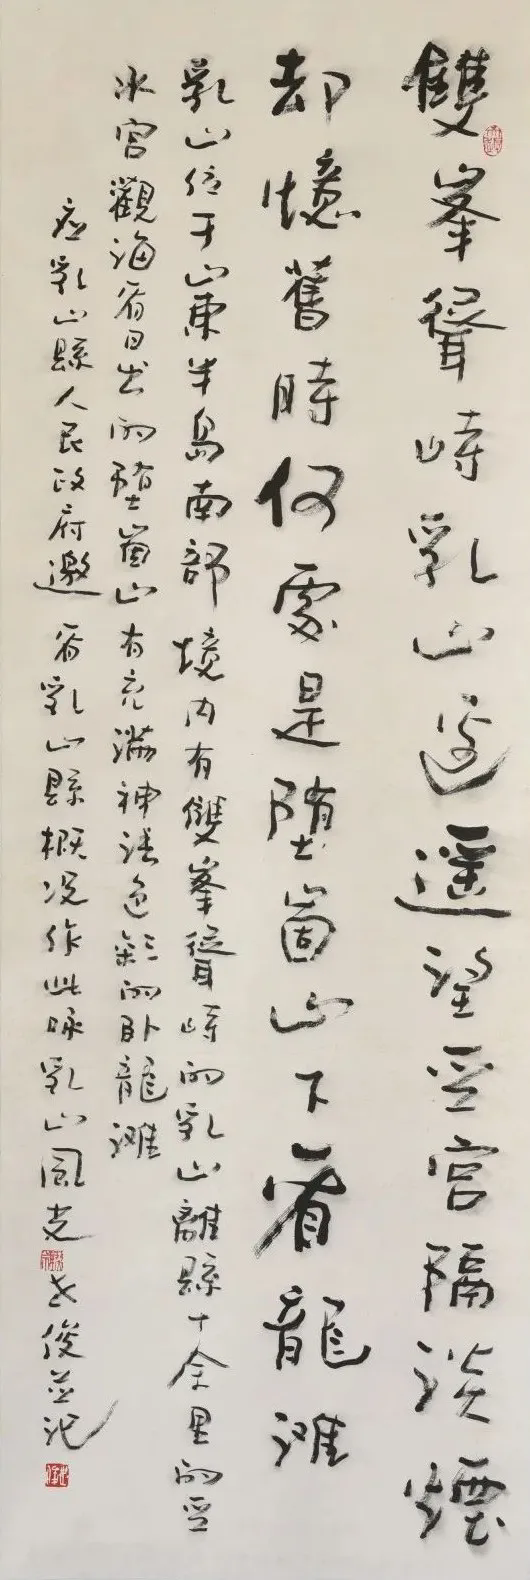 雙峯聳峙乳山邊遥望皇宮隔淡煙
却憶舊時何處是堕崮山下看龍滩
乳山位于山東半島南部境内有雙峯聳峙的乳山離縣十余里的皇
水宮觀海看日出的堕崮山有充滿神話色彩的卧龍滩
应乳山縣人民政府邀看乳山縣概况作此咏乳山風光 俊并记